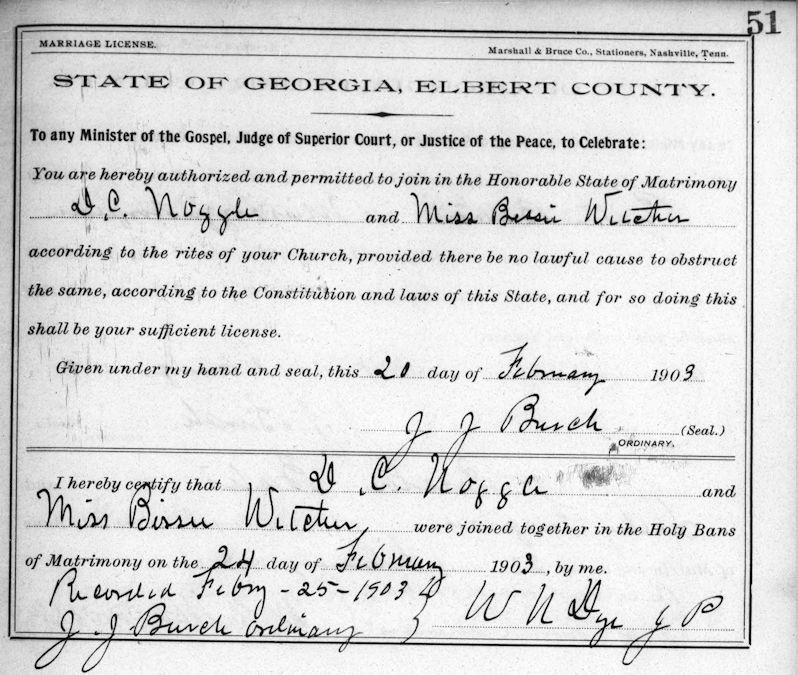 51
MARRIAGE LICENSE. Marshall & Bruce Co., Stationers, Nashville, Tenn.
STATE OF GEORGIA, ELBERT COUNTY.
To any Minister of the Gospel, Judge of Superior Court, or Justice of the Peace, to Celebrate:
You are hereby authorized and permitted to join in the Honorable State of Matrimony
D. C. Noggle and Miss Bessie Witcher
according to the rites of your Church, provided there be no lawful cause to obstruct
the same, according to the Constitution and laws of this State, and for so doing this
shall be your sufficient license.
Given under my hand and seal, this 20 day of February 1903
J J Burch (Seal.)
ORDINARY.
I hereby certify that D. C. Noggle and
Miss Bessie Witcher were joined together in the Holy Bans
of Matrimony on the 24 day of February 1903, by me.
Recorded Febry - 25 - 1903
W N Dye J P
J. J. Burch ordinary